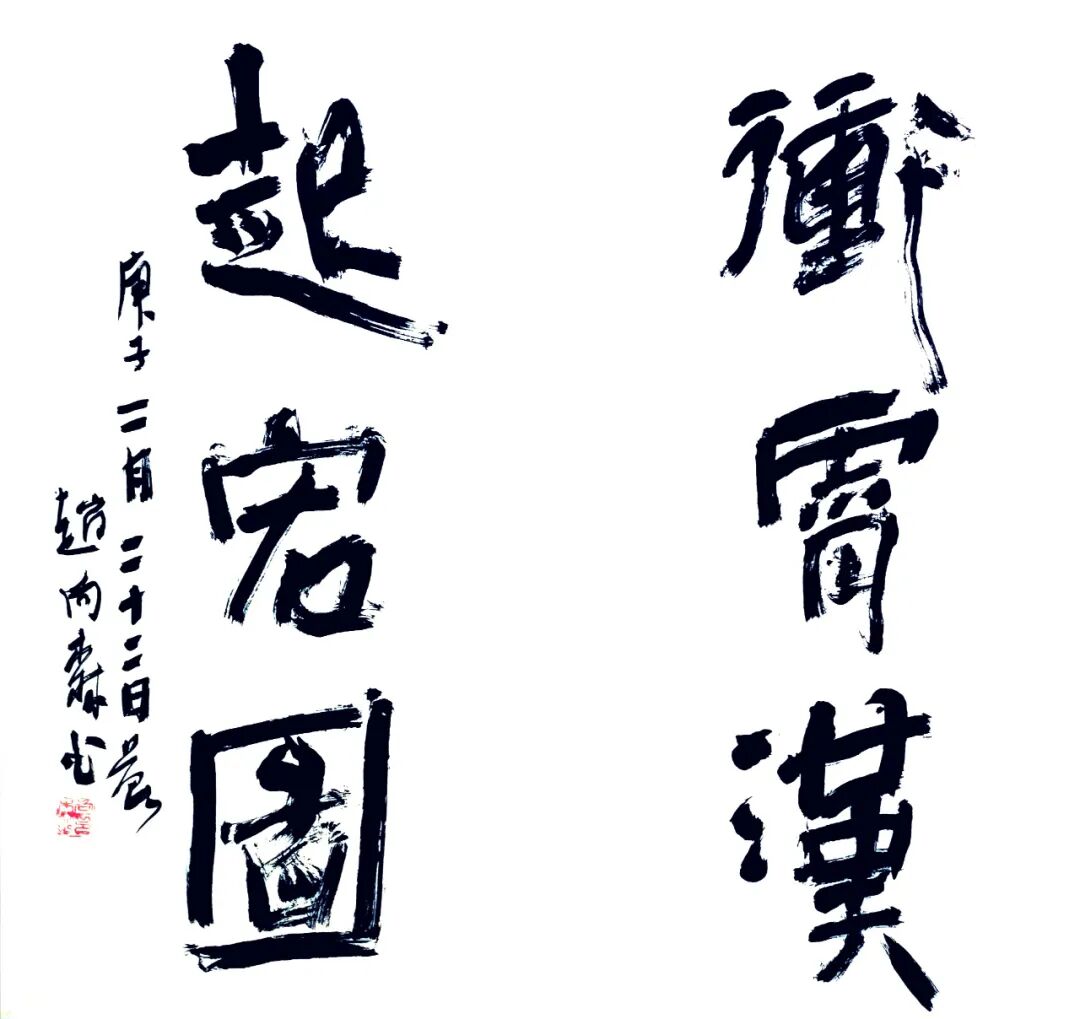 衝霄漢
起宏圖
庚子二月二十二日晨
趙向森书